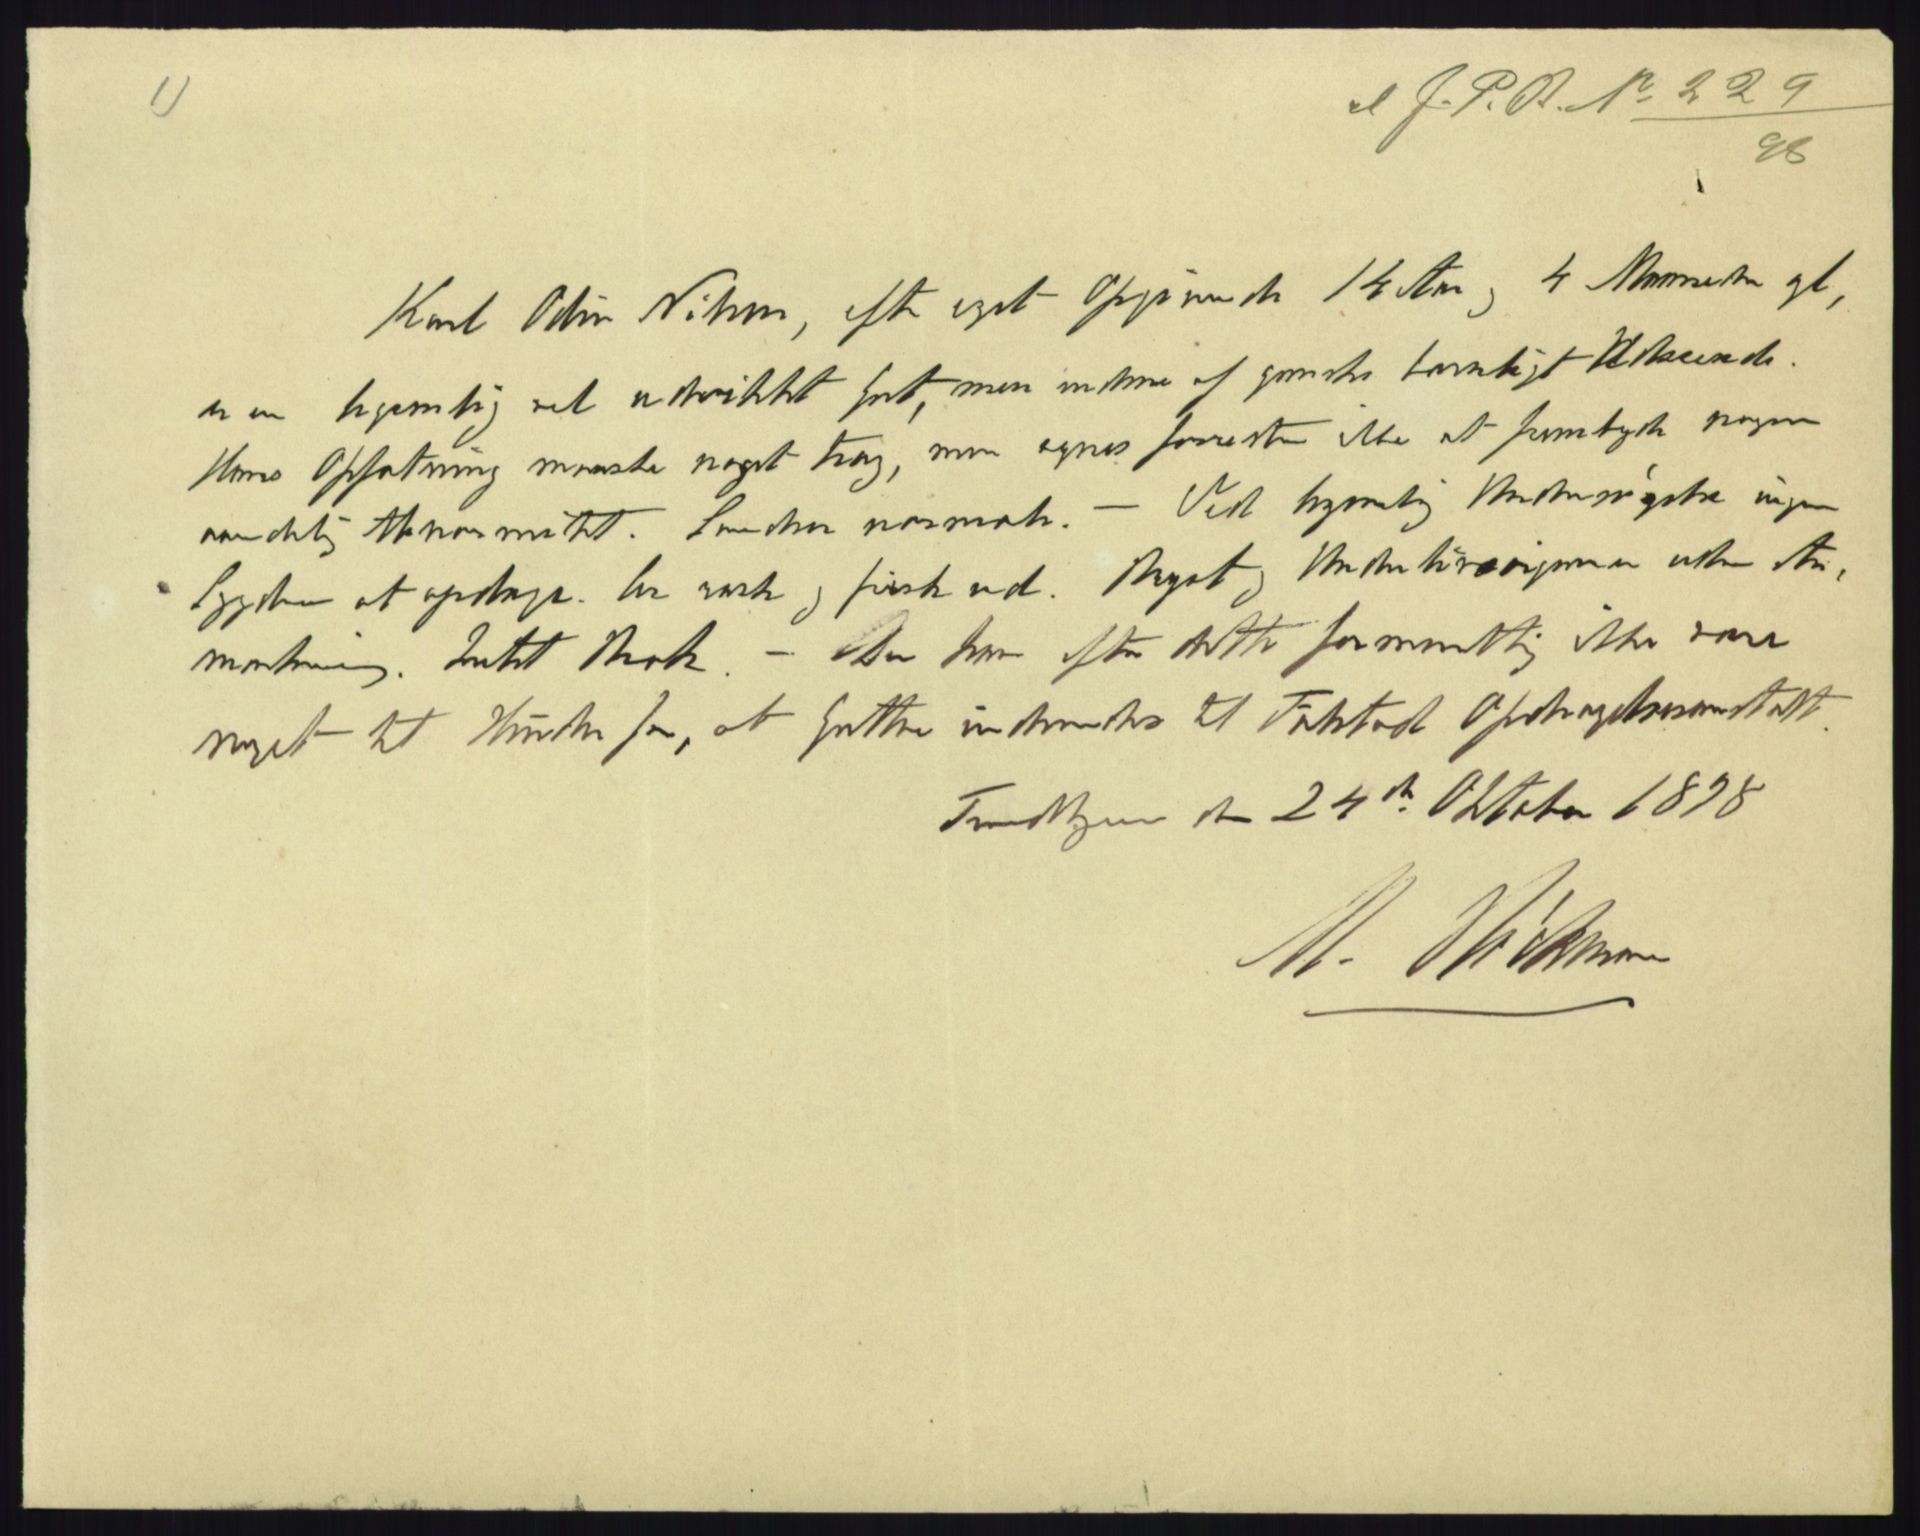 1)
ad J.P.A. No 229
98
Karl Odin Nilsen, efter eget Opgivende 14 Aar og 4 Maaneder gl,
er en legemlig vel udviklet Gut, men endnu af ganske barnligt Udseende.
Hans Opfatning maaske noget træg, men synes forresten ikke at frembyde nogen
aandelig Abnormitet. Sandser normale. — Ved legemlig Undersøgelse ingen
Sygdom at opdage. Ser rask og frisk ud. Bryst og Underlivsorganer uden An-
mærkning. Intet Brok. — Der kan efter dette formentlig ikke være
noget til Hinder for, at Gutten indsendes til Falstad Opdragelsesanstalt.
Trondhjem den 24de Oktober 1898